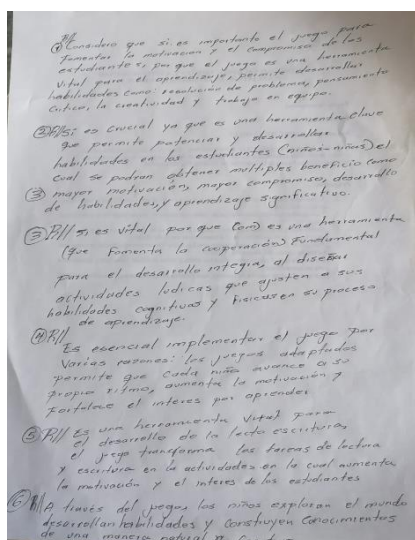 P//
① Considero que si es importante el juego para
fomentar la motivación y el compromiso de los
estudiantes, por que el juego es una herramienta
vital para el aprendizaje, permite desarrollar
habilidades como: resolución de problemas, pensamiento
critico, la creatividad y trabajo en equipo.
② P// Si es crucial ya que es una herramienta clave
que permite potenciar y desarrollar
habilidades en los estudiantes (niños-niñas) el
cual se podran obtener multiples beneficio como
③ mayor motivación, mayor compromiso, desarrollo
de habilidades, y aprendizaje significativo.
③ P// si es vital por que es una herramienta
(que fomenta la cooperación) fundamental
para el desarrollo integra, al diseñar
actividades ludicas que ajusten a sus
habilidades cognitivas y fisicas en su proceso
de aprendizaje.
④ P//
Es esencial implementar el juego por
varias razones: los juegos adaptados
permite que cada niño avance a su
propio ritmo, aumenta la motivación y
fortalece el interes por aprender
⑤ P// Es una herramienta vital para
el desarrello de la lecto escritura,
el juego transforma las tareas de lectura
y escritura en la actividades en la cual aumenta
la motivación y el interes de los estudiantes
⑥ P// A través del juego los niños exploran el mundo
desarrollan habilidades y construyen conocimientos
de una manera natural